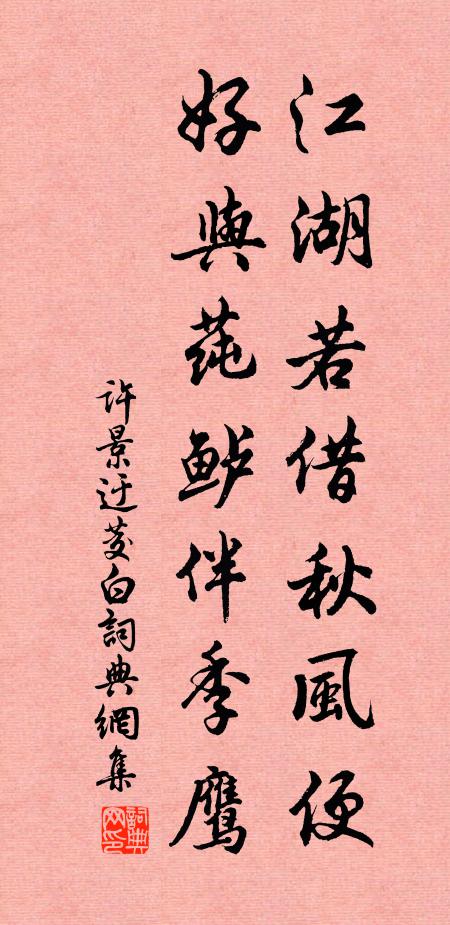 江湖若借秋風便
好與莼鲈伴季鹰
許景迂茭白詞典網集
詞典網印